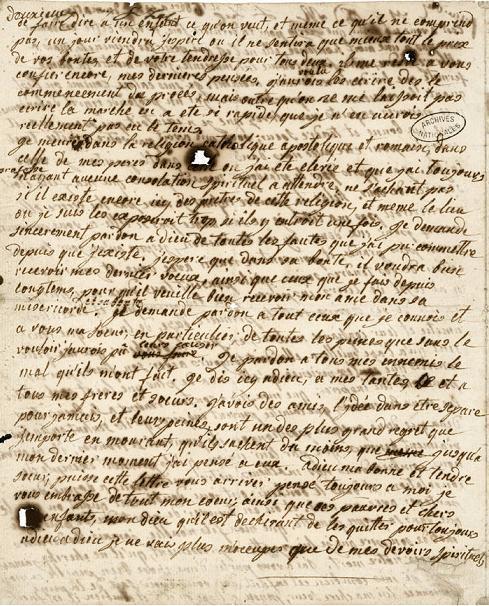 deuxieme
de faire dire a un enfant ce qu'on veut, et meme ce qu'il ne comprend
pas, un jour viendra j'espere ou il ne sentira que mieux tout le prix
de vos bontes et de votre tendresse pour tous deux. il me reste a vous
confier encore, mes dernieres pensées, j'aurois voulu les ecrire dès le
commencement du proces, mais outre qu'on ne me laissoit pas
ecrire la marche en a ete si rapide, que je n'en aurois
reellement pas eu le tems.
je meurs dans la religion catholique apostolique et romaine, dans
celle de mes peres dans ou j'ai été elevée et que j'ai toujours
professée
n'ayant aucune consolation spirituel a attendre, ne sachant pas
s'il existe encore ici des pretres de cette religion, et meme le lieu
ou je suis les exposeroit trop si ils y entroit une fois. je demande
sincerement pardon a dieu de toutes les fautes que j'ai pu commettre
depuis que j'existe. j'espere que dans sa bonté, il voudra bien
recevoir mes derniers voeux, ainsi que ceux que je fais depuis
longtems, pour qu'il veuille bien recevoir mon ame dans sa
misericorde et sa bonté. je demande pardon a tout ceux que je connois et
a vous ma soeur en particulier de toutes les peines que sans le
vouloir j'aurois pu vous causer. je pardon a tous mes ennemis le
mal qu'ils m'ont fait. je dis ici adieu, a mes tantes et a
tous mes freres et soeurs. j'avois des amis, l'idée d'en etre separé
pour jamais, et leurs peines, sont un des plus grand regret que
j'emporte en mourant, qu'ils sachent du moins, que jusqu'a
mon dernier moment j'ai pensé a eux. adieu ma bonne et tendre
soeur, puisse cette lettre vous arriver, pensé toujours a moi je
vous embrasse de tout mon coeur, ainsi que ces pauvres et chers
enfants, mon dieu qu'il est dechirant de les quitter pour toujours
adieu adieu je ne vais plus m'occuper que de mes devoirs spirituels
ARCHIVES
NATIONALES